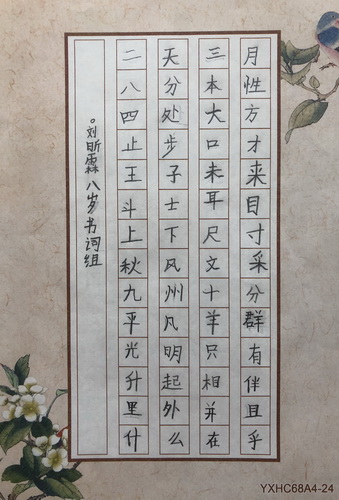 月性方才来目寸采分群有伴且乎
三本大口未耳尺文十羊只相并在
天分处步子士下风州凡明起外么
二八四止王斗上秋九平光升里什
。刘昕霖八岁书词组
YXHC68A4-24